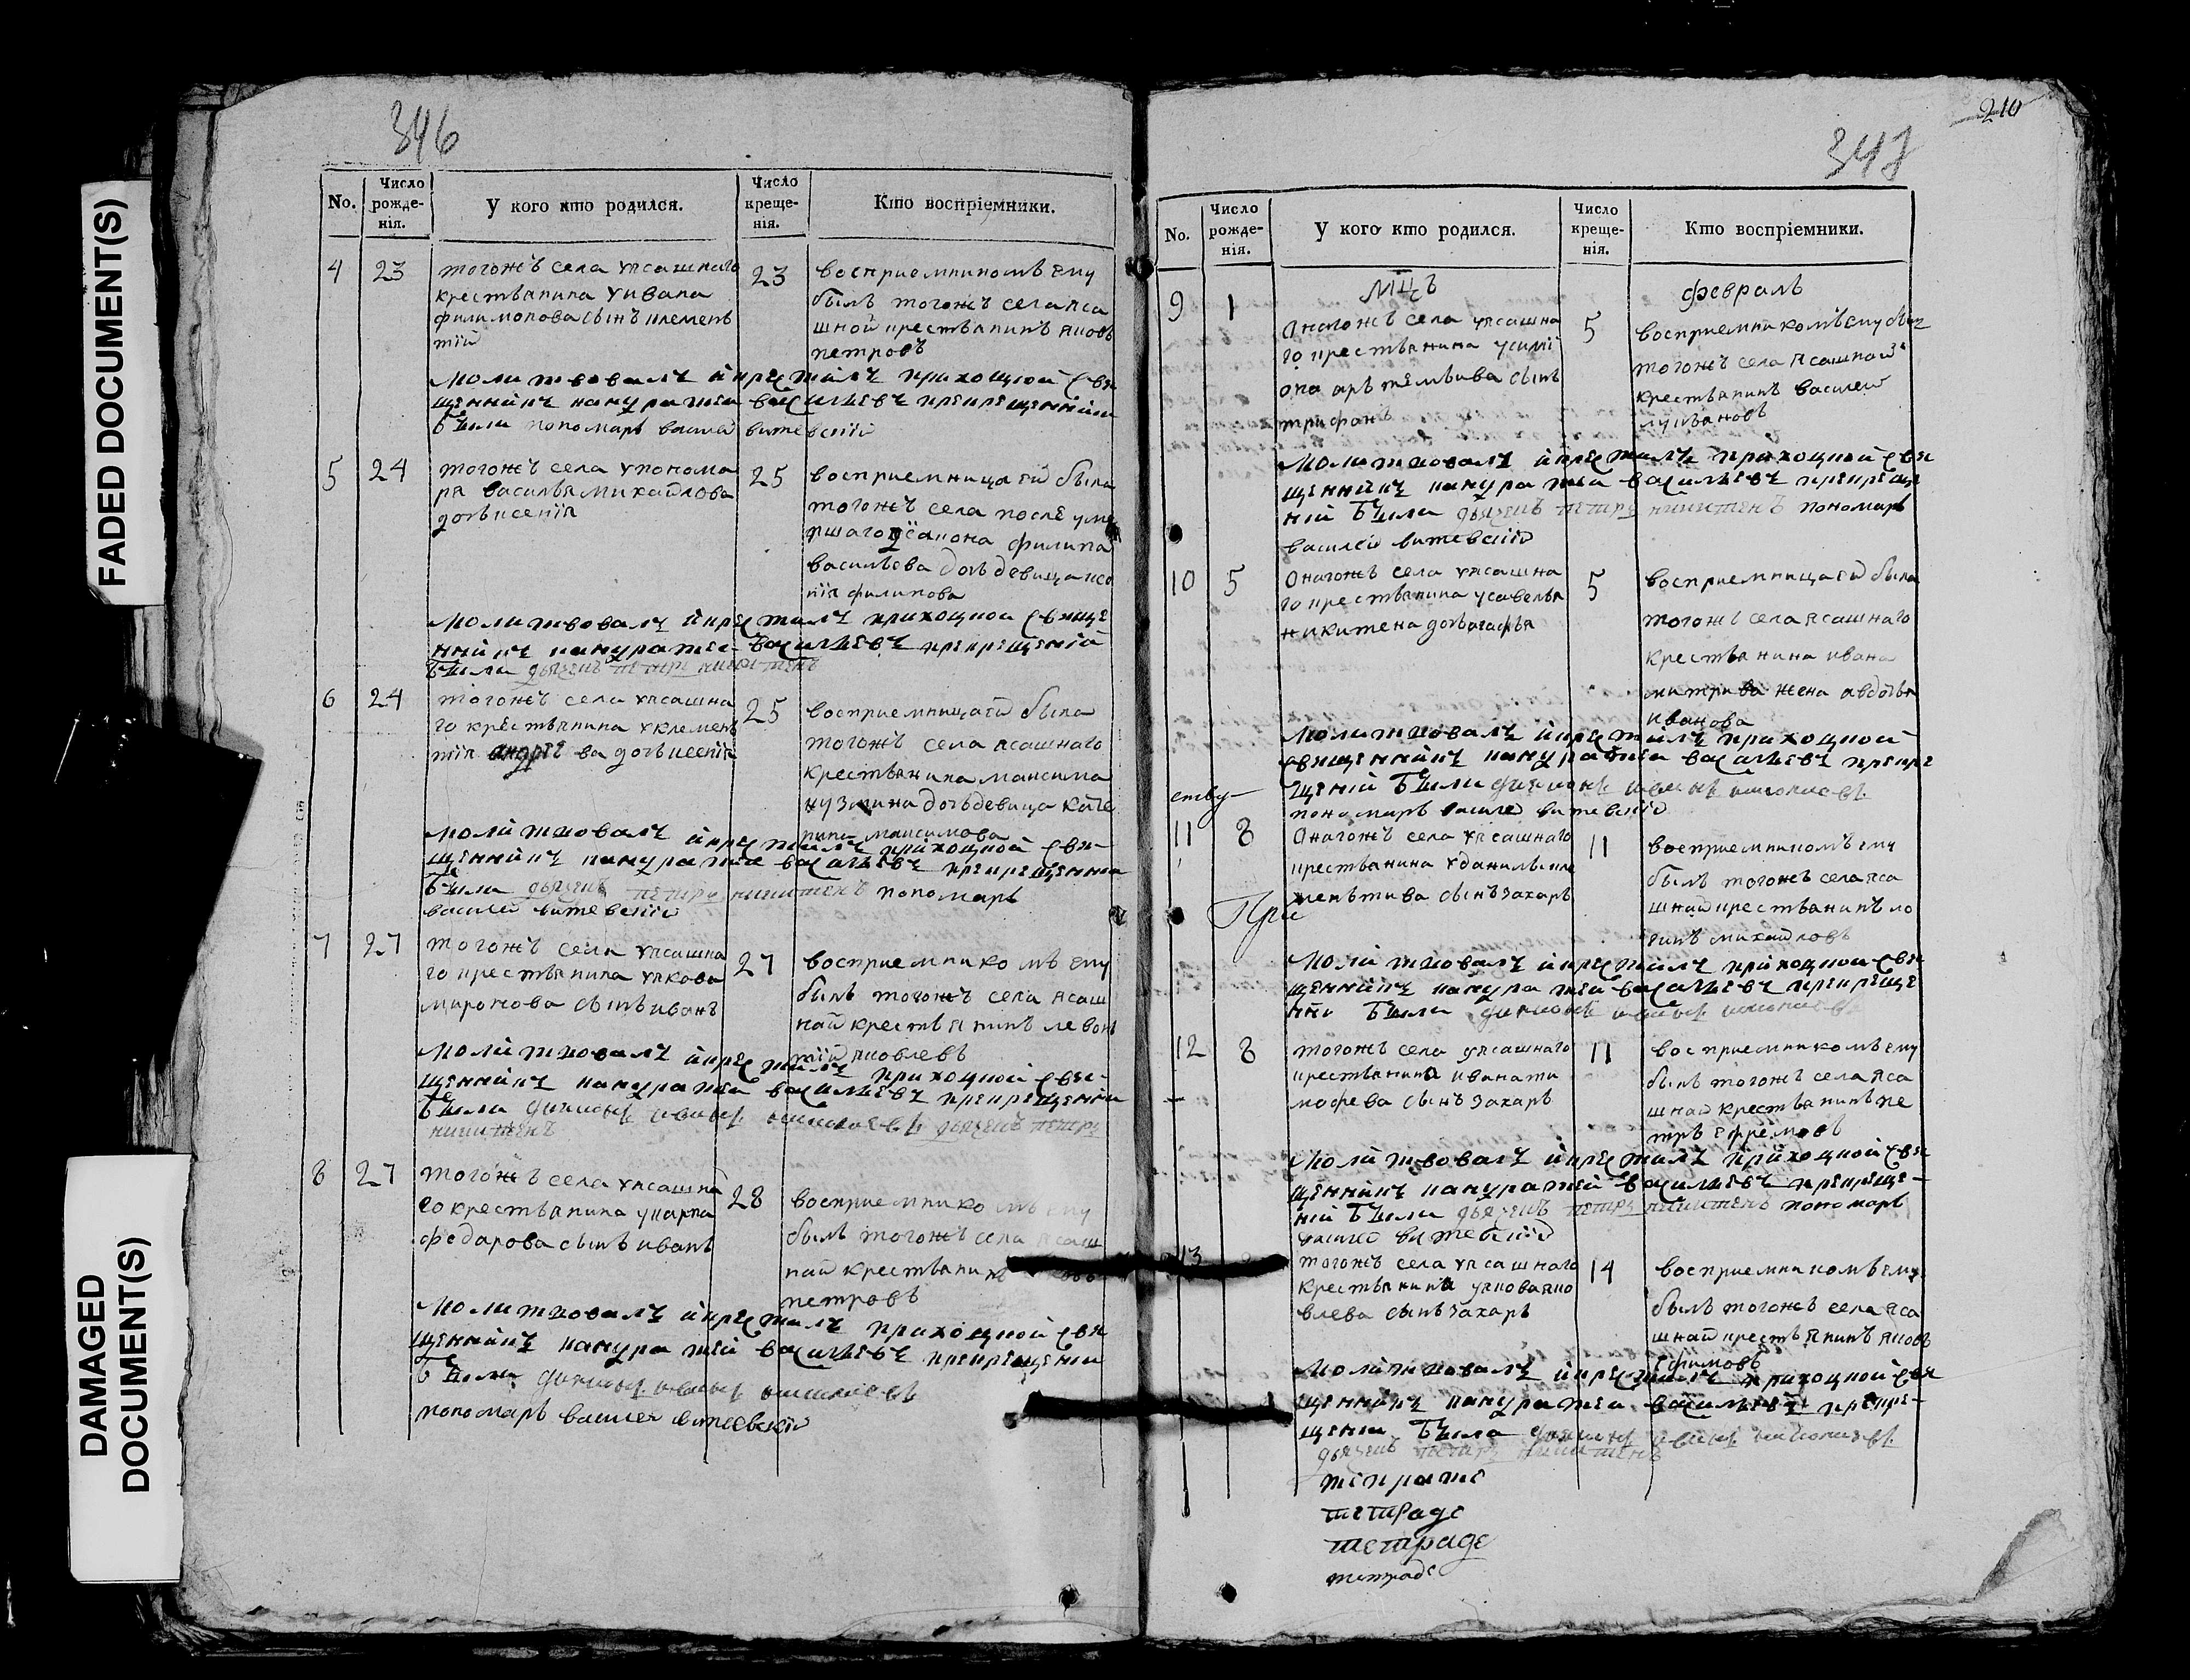 FADED DOCUMENT(S)
DAMAGED
DOCUMENT(S)
346
No.
Число
рожде-
нія.
У кого кто родился.
Число
креще-
нія.
Кто воспріемники.
4 23
тогожъ села уясашнаго
крестьянина уивана
филимонова сынъ клемен
тій
23
восприемникомъ ему
былъ тогожъ села яса
шной крестьянинъ яковъ
петровъ
молитвовалъ и крестилъ приходной свя
щенникъ кандратей васильевъ прикрещенiи
были пономарь василей витевскiй
5 24
тогожъ села упонома
ря василья михайлова
дочь ксенiя
25
восприемница ей была
тогожъ села после уме
ршаго дiакона филипа
васильева дочь девица ксе
нiя филипова
молитвовалъ и крестилъ приходной священ
нникъ кандратей васильевъ прикрещенiй
были дьячекъ петръ никитенъ
6 24
тогожъ села уясашна
го крестьянина уклемен
тiя андрее ва дочь ксенiя
25
восприемница ей была
тогожъ села ясашнаго
крестьянина максима
кузмина дочь девица кате
рина максимова
молитвовалъ и крестилъ приходной свя-
щенникъ кандратей васильевъ прикрещенiи
были дьячекъ петръ никитенъ пономарь
василей витевскiй
7 27
тогожъ села уясашна
го крестьянина уякова
миронова сынъ иванъ
27
восприемнико мъ ему
былъ тогожъ села ясаш
най крестьянинъ левон
тiй яковлевъ
молитвовалъ и крестилъ приходной свя-
щенникъ кандратей васильевъ прикрещенiи
были дьяконъ дьячекъ петръ
никитенъ
8 27
тогожъ села уясашна
го крестьянина укарпа
федарова сынъ иванъ
28
восприемнико мъ ему
былъ тогожъ села ясаш
най крестьянинъ
петровъ
молитвовалъ и крестилъ приходной свя
щенникъ кандратей васильевъ прикрещенiи
были дьяконъ
пономарь василей витевскiй
210
347
No.
Число
рожде-
нія.
У кого кто родился.
Число
креще-
нія.
Кто воспріемники.
мцъ февраль
9 1
Оногожъ села уясашна
го крестьянина усимi
она артемьива сынъ
трифонъ
5
восприемникомъ ему был
тогожъ села ясашной
крестьянинъ василей
лукьановъ
молитвовалъ и крестилъ приходной свя
щенникъ кандратей васильевъ прикреще
нiй были дьячекъ петръ никитенъ пономарь
василей витевскiй
10 5
Оногожъ села уясашна
го крестьянина усавелья
никитена дочь агафья
5
восприемница ей была
тогожъ села ясашнаго
крестьянина ивана
митрива жена авдотья
иванова
молитвовалъ и крестилъ приходной
священникъ кандратей васильевъ прикре
щенiй были дьяконъ
ству
пономарь василей витевскiй
11 8
Оногожъ села уясашнаго
крестьянина уданилы кле
ментива сынъ захаръ
11
восприемникомъ ему
былъ тогожъ села яса
шнай крестьянинъ ло
гинъ михайловъ
При
молитвовалъ и крестилъ приходной свя
щенникъ кандратей васильевъ прикреще
нiи были дьяконъ
12 8
тогожъ села уясашнаго
крестьянина ивана ти
мофева сынъ захаръ
11
восприемникомъ ему
былъ тогожъ села яса
шнай крестьянинъ пе
тръ ефремовъ
молитвовалъ и крестилъ приходной свя
щенникъ кандратей васильевъ прикреще-
нiй были дьячекъ петръ никитенъ пономарь
василей витевскiй
13
тогожъ села уясашнаго
крестьянина уякова яко
влева сынъ захаръ
14
восприемникомъ ему
былъ тогожъ села яса
шнай крестьянинъ яковъ
ефимовъ
молитвовалъ и крестилъ приходной свя
щенникъ кандратей васильевъ прикре-
щенiи были дьяконъ
дьячекъ петръ никитенъ
тетраде
тетраде
тетраде